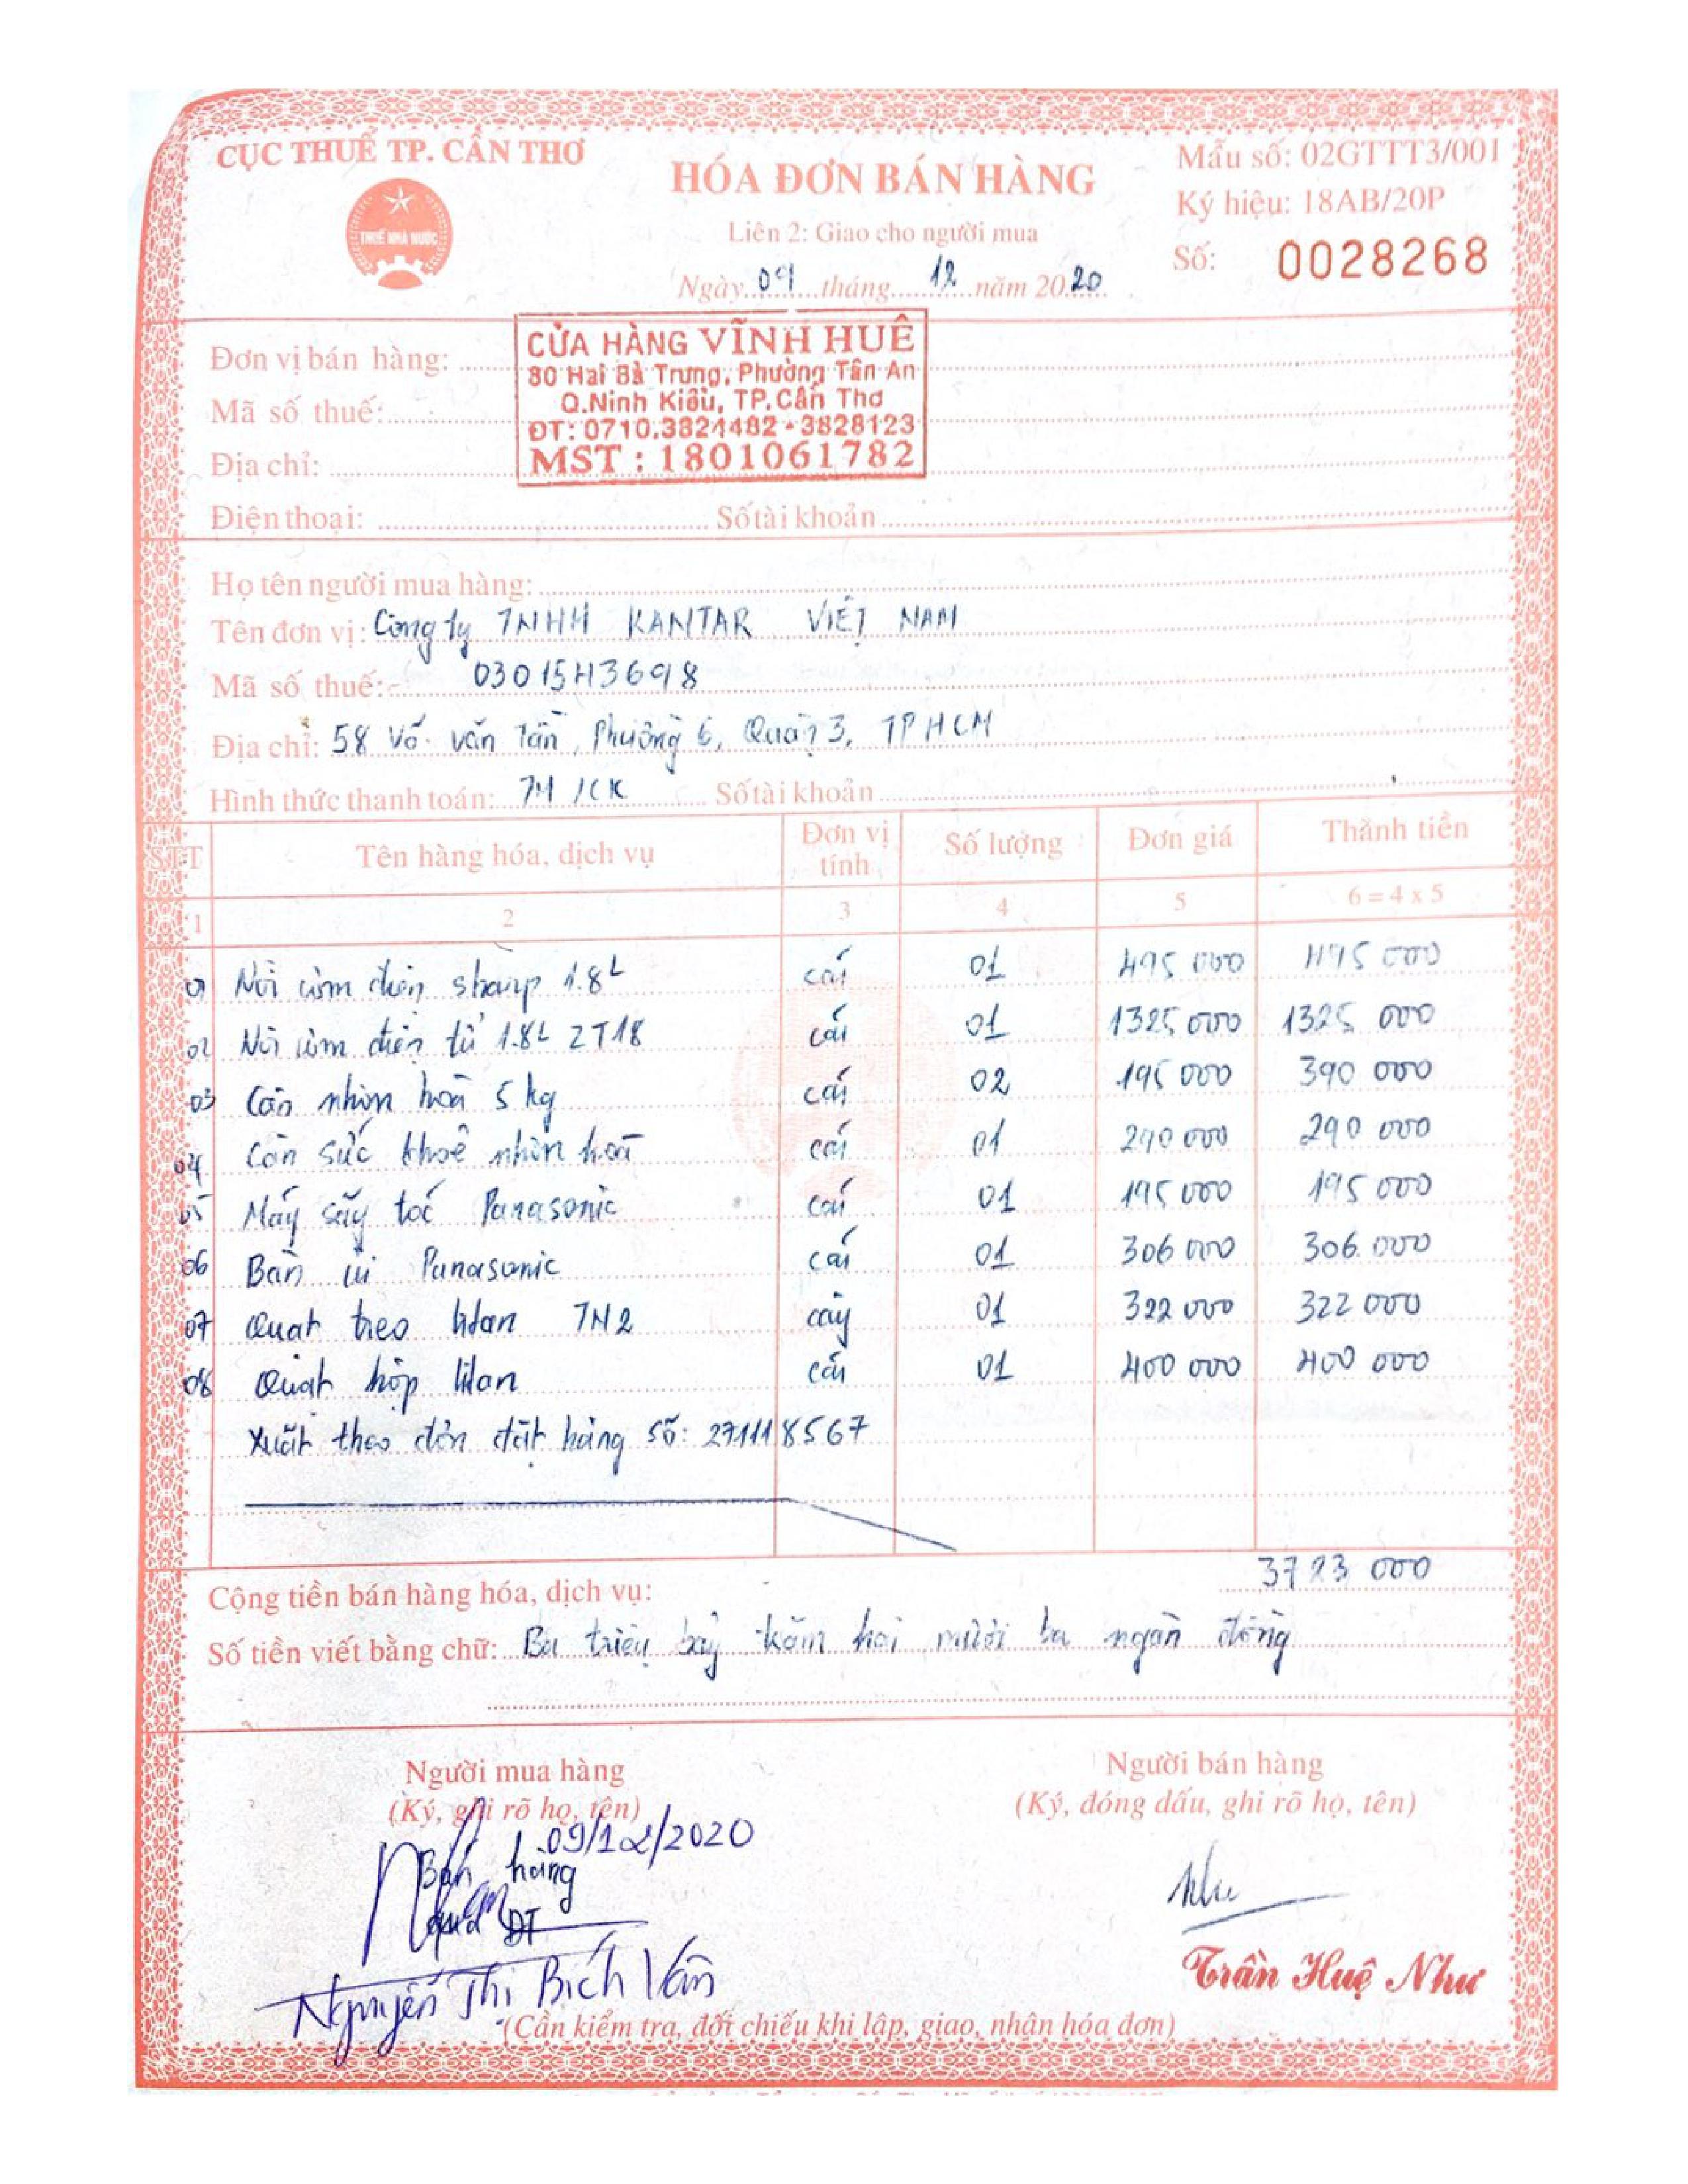 CỤC THUẾ TP. CẦN THƠ
THUẾ NHÀ NƯỚC
HÓA ĐƠN BÁN HÀNG
Liên 2: Giao cho người mua
Ngày 09 tháng 12 năm 2020
Mẫu số: 02GTTT3/001
Ký hiệu: 18AB/20P
Số: 0028268
CỬA HÀNG VĨNH HUÊ
80 Hai Bà Trưng, Phường Tân An
Q.Ninh Kiều, TP.Cần Thơ
ĐT: 0710.3821482 - 3828123
MST : 1801061782
Đơn vị bán hàng:
Mã số thuế:
Địa chỉ:
Điện thoại: Số tài khoản
Họ tên người mua hàng:
Tên đơn vị: Công ty TNHH KANTAR VIỆT NAM
Mã số thuế: 0301543698
Địa chỉ: 58 Võ Văn Tần, Phường 6, Quận 3, TPHCM
Hình thức thanh toán: TM/CK Số tài khoản
STT Tên hàng hóa, dịch vụ Đơn vị tính Số lượng Đơn giá Thành tiền
1 2 3 4 5 6 = 4 x 5
01 Nồi cơm điện sharp 1.8L cái 01 495 000 495 000
02 Nồi cơm điện tử 1.8L ZT18 cái 01 1325 000 1325 000
03 Cân nhơn hoà 5 kg cái 02 195 000 390 000
04 Cân sức khoẻ nhơn hoà cái 01 290 000 290 000
05 Máy sấy tóc Panasonic cái 01 195 000 195 000
06 Bàn ủi Panasonic cái 01 306 000 306.000
07 Quạt treo titan TN2 cây 01 322 000 322 000
08 Quạt hộp titan cái 01 400 000 400 000
Xuất theo đơn đặt hàng số: 271118567
Cộng tiền bán hàng hóa, dịch vụ: 3723 000
Số tiền viết bằng chữ: Ba triệu bảy trăm hai mươi ba ngàn đồng
Người mua hàng
(Ký, ghi rõ họ, tên)
09/12/2020
Bán hàng
qua ĐT
Nguyễn Thị Bích Vân
Người bán hàng
(Ký, đóng dấu, ghi rõ họ, tên)
Như
Trần Huệ Như
(Cần kiểm tra, đối chiếu khi lập, giao, nhận hóa đơn)